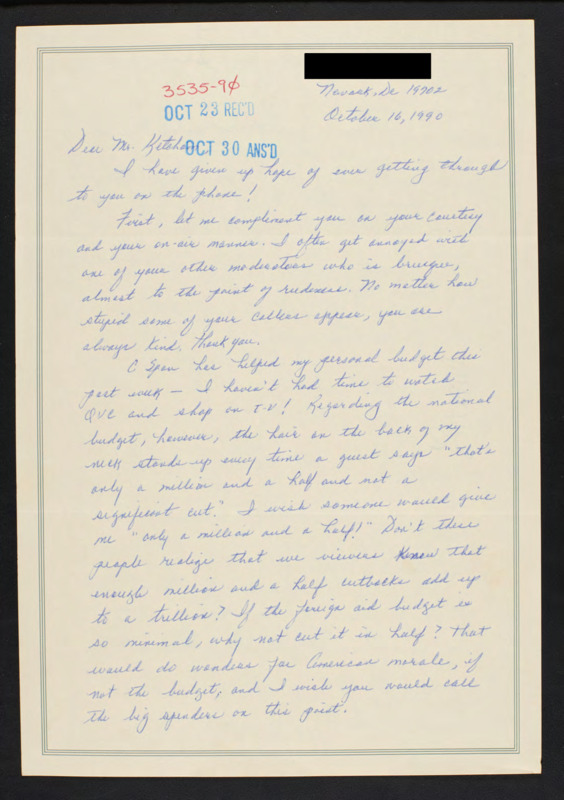 3535-90
OCT 23 REC'D
OCT 30 ANS'D
Newark, De 19702
October 16, 1990
Dear Mr.
I have given up hope of ever getting through
to you on the phone!
First, let me compliment you on your courtesy
and your on-air manner. I often get annoyed with
one of your other moderators who is brusque,
almost to the point of rudeness. No matter how
stupid some of your callers appear, you are
always kind. Thank you.
C Span has helped my personal budget this
past week — I haven't had time to watch
QVC and shop on T-V! Regarding the national
budget, however, the hair on the back of my
neck stands up every time a guest says "that's
only a million and a half and not a
significant cut." I wish someone would give
me "only a million and a half!" Don't these
people realize that we viewers know that
enough million and a half cutbacks add up
to a trillion? If the foreign aid budget is
so minimal, why not cut it in half? That
would do wonders for American morale, if
not the budget, and I wish you would call
the big spenders on this point.